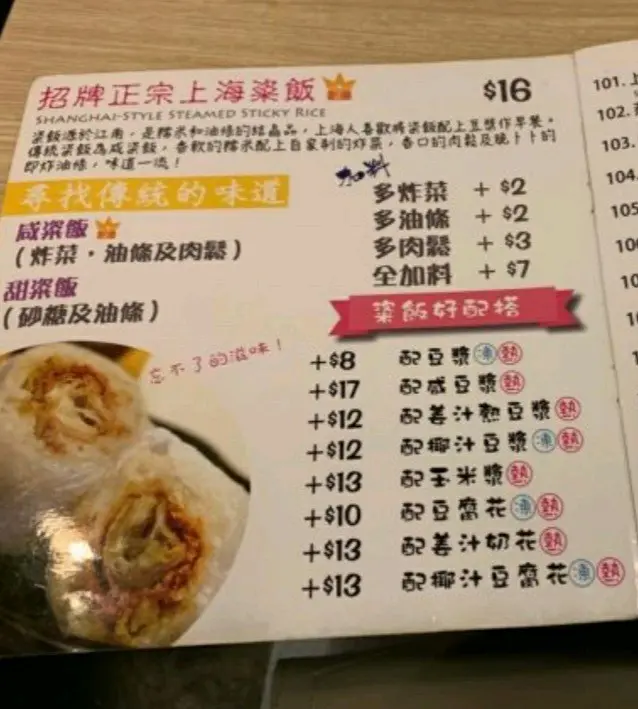 招牌正宗上海粢飯 $16
SHANGHAI-STYLE STEAMED STICKY RICE
粢飯源於江南，是糯米和油條的結晶品，上海人喜歡將粢飯配上豆漿作早餐。
傳統粢飯為咸粢飯，香軟的糯米配上自家制的炸菜，香口的肉鬆及脆卜卜的
即炸油條，味道一流！
尋找傳統的味道
咸粢飯
(炸菜·油條及肉鬆)
甜粢飯
(砂糖及油條)
忘不了的滋味！
加料
多炸菜 + $2
多油條 + $2
多肉鬆 + $3
全加料 + $7
粢飯好配搭
+$8 配豆漿 凍 熱
+$17 配咸豆漿 熱
+$12 配姜汁熱豆漿 熱
+$12 配椰汁豆漿 凍 熱
+$13 配玉米漿 熱
+$10 配豆腐花 凍 熱
+$13 配姜汁奶花 熱
+$13 配椰汁豆腐花 凍 熱
101. 上
102.
103.
104.
105